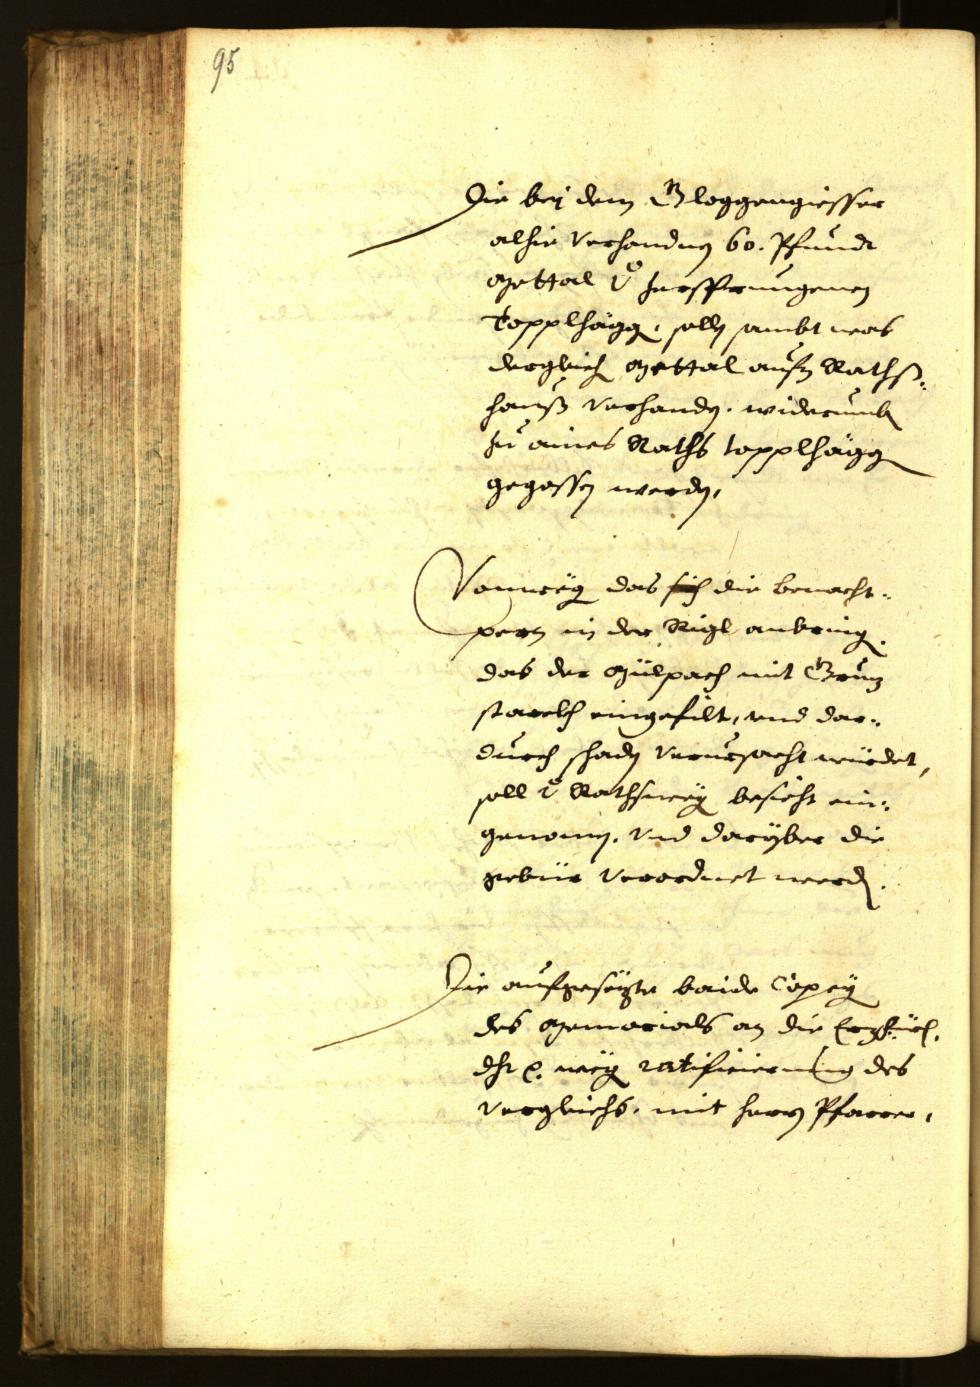 95
Die bej dem Gloggengiesser
alhie verhandnen 60. Pfundt
Mettal der zersprungenen
Topplhägg, sollen sambt was
dergleich Mettal aufm Raths¬
hauß verhanden, widerumb
zu aines Raths topplhägg
gegossen werden,
Vonweg das sich die benach¬
pern in der Rigl anbring,
das der Mülpach mit Grunt
starckh eingefült, und dar¬
durch schaden verursacht würdet,
soll der Rathsweg besicht ein¬
genomen, und darüber die
gebür verordnet werden.
Die aufgesezte baide Copey
des Memorials an die Erzfürl.
dht p. weg ratificierung des
vergleichs, mit herrn Pfarrer,